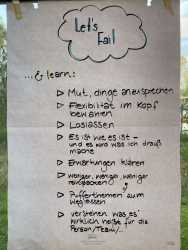 Let's
Fail
...& learn:
▷ Mut, dinge anzusprechen
▷ Flexibilität im Kopf
bewahren
▷ Loslassen
▷ Es ist wie es ist -
und es wird was ich drauß
mache
▷ Erwartungen klären
▷ weniger, weniger, weniger
reinpacken
▷ Pufferthemen zum
Weglassen
▷ verstehen, was es
wirklich heißt für die
Person/Team/...